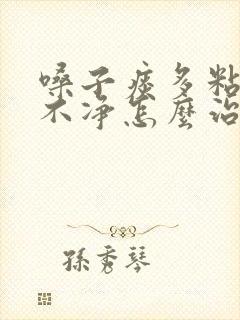 嗓子痰多粘
不净怎麼治
孫秀琴